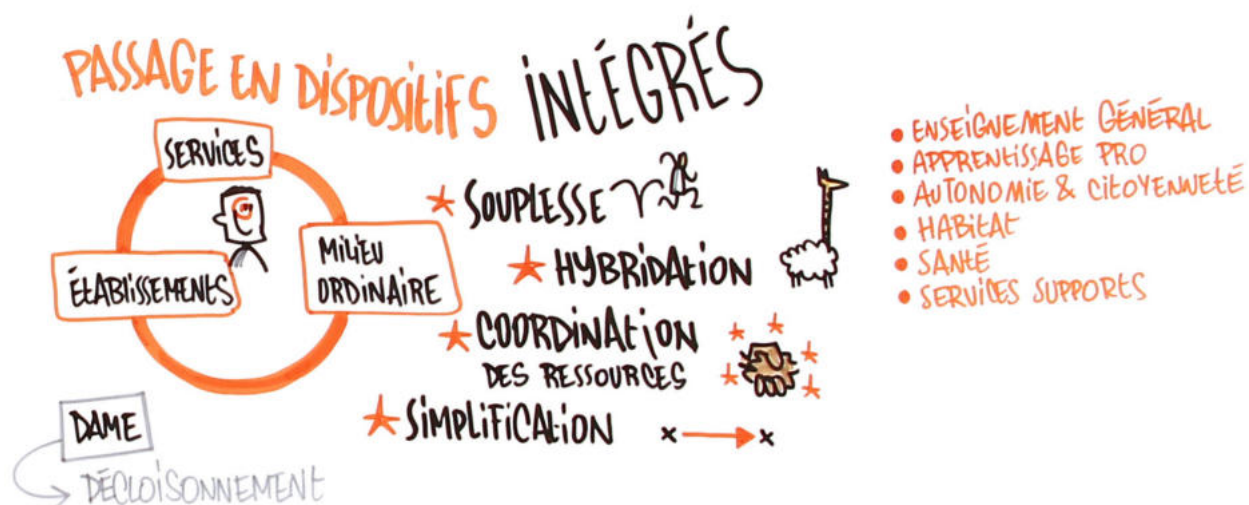 PASSAGE EN DISPOSITIFS INTÉGRÉS
SERVICES
ÉTABLISSEMENTS
MILIEU
ORDINAIRE
DAME
DÉCLOISONNEMENT
SOUPLESSE
HYBRIDATION
COORDINATION
DES RESSOURCES
SIMPLIFICATION
• ENSEIGNEMENT GÉNÉRAL
• APPRENTISSAGE PRO
• AUTONOMIE & CITOYENNETÉ
• HABITAT
• SANTÉ
• SERVICES SUPPORTS